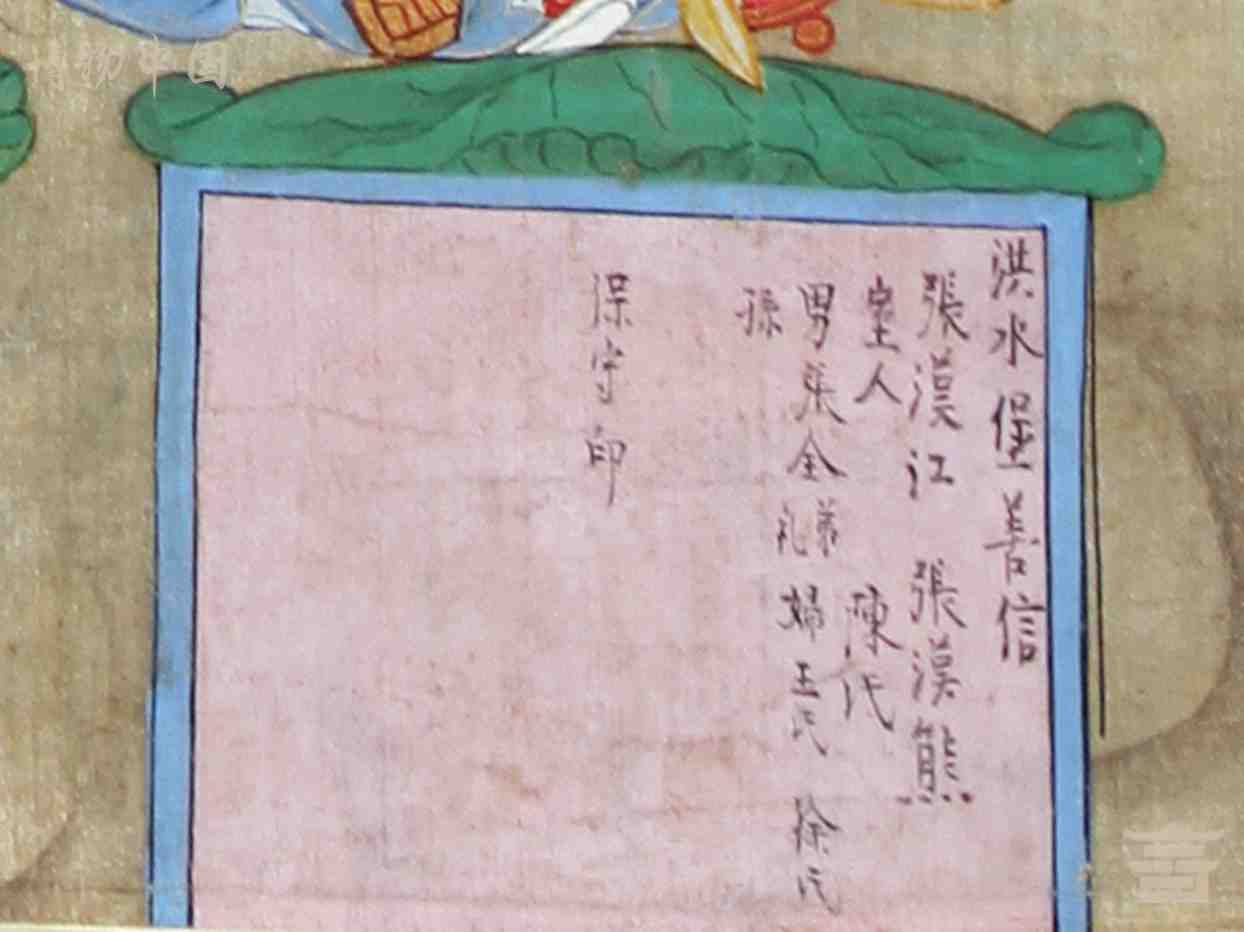 洪水堡善信
張漢江 張漢熊
室人 陳氏
男張全弟礼 婦王氏 徐氏
孫
保守印
博物中国